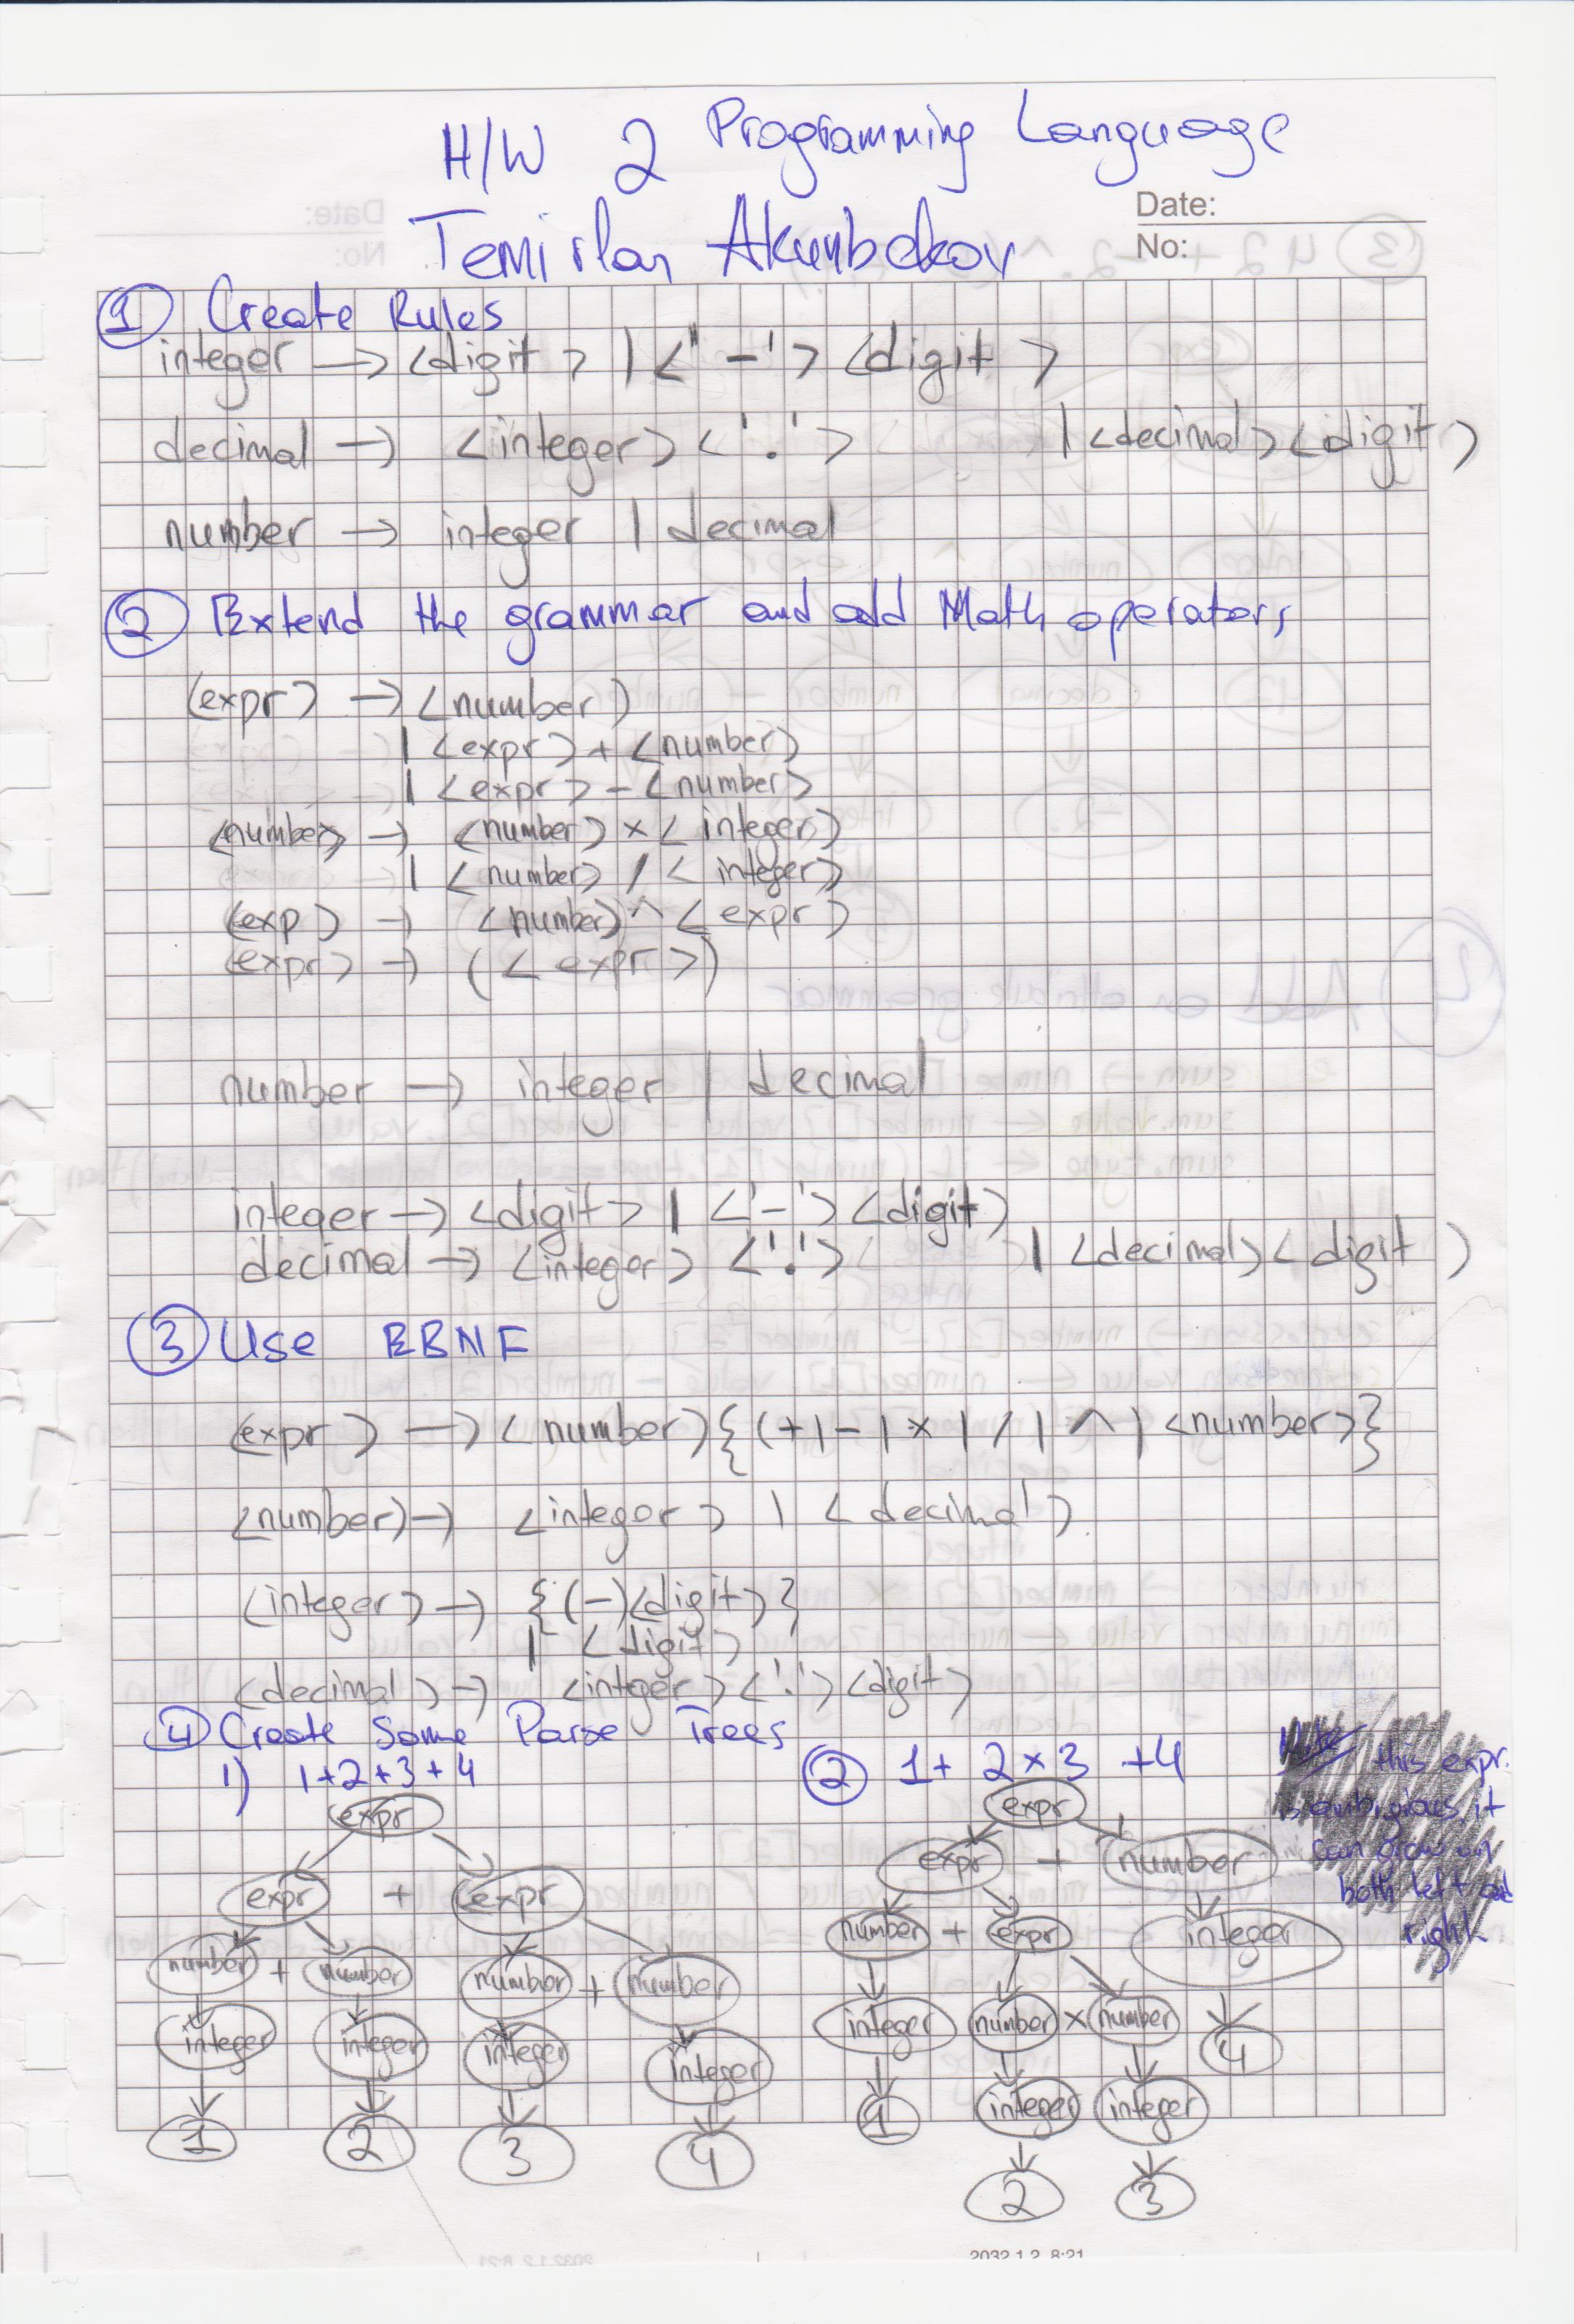 H/W 2 Programming Language
Date:
Temirlan Akunbekov
No:
1 Create Rules
integer → <digit> | <"-'> <digit>
decimal → <integer> <'.'> | <decimal> <digit>
number → integer | decimal
2 Extend the grammar and add Math operators
<expr> → <number>
| <expr> + <number>
| <expr> - <number>
<number> → <number> × <integer>
| <number> / <integer>
<exp> → <number> ^ <expr>
<expr> → (<expr>)
number → integer | decimal
integer → <digit> | <'-'> <digit>
decimal → <integer> <'.'> | <decimal> <digit>
3 Use EBNF
<expr> → <number> {(+|-|×|/|^| <number>}
<number> → <integer> | <decimal>
<integer> → {(-)<digit>}
| <digit>
<decimal> → <integer> <'.'> <digit>
4 Create Some Parse Trees
1) 1+2+3+4
2 1+ 2×3 +4
this expr.
is ambigious, it
can grow on
both left and
right
expr
expr + expr
number + number number + number
integer integer integer integer
1 2 3 4
expr
expr + number
number + expr integer
integer number × number 4
1 integer integer
2 3
2032.1.2. 8:21